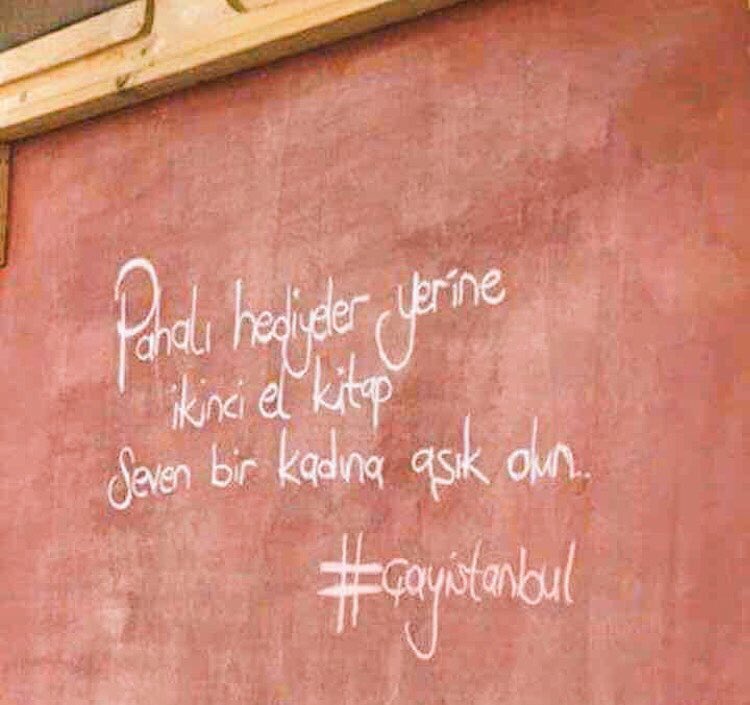 Pahalı hediyeler yerine
ikinci el kitap
Seven bir kadına aşık olun..
#çayistanbul